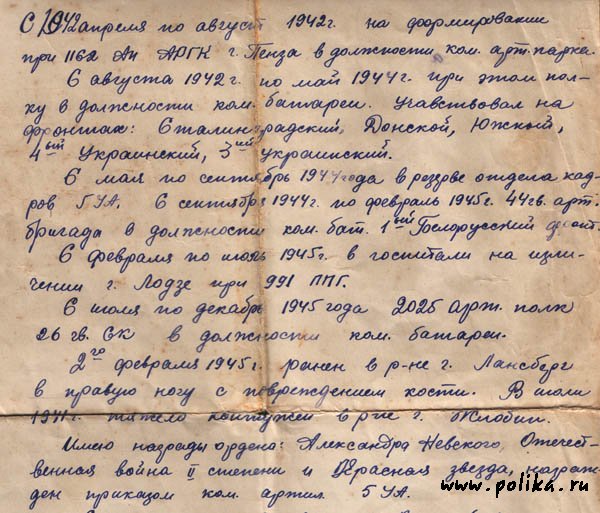 С 1942 апреля по август 1942г. на формировании
при 1162 Ап АРГК г. Пенза в должности ком. арт. парка.
С августа 1942г. по май 1944г. при этом пол-
ку в должности ком. батареи. Учавствовал на
фронтах: Сталинградский, Донской, Южный,
4ый Украинский, 3ий Украинский.
С мая по сентябрь 1944 года в резерве отдела кад-
ров 5 УА. С сентября 1944г. по февраль 1945г. 44 гв. арт.
бригада в должности ком. бат. 1ый Белорусский фронт.
С февраля по июль 1945г. в госпитали на изле-
чении г. Лодзе при 991 ППГ.
С июля по декабрь 1945 года 2025 арт. полк
26 гв. СК в должности ком. батареи.
2го февраля 1945г. ранен в р-не г. Лансберг
в правую ногу с повреждением кости. В июли
тяжело контужен в р-не г. Жлобин.
Имею награды ордена: Александра Невского, Отечест-
венная война II степени и Красная звезда, награж-
ден приказом ком. артил. 5 УА.
www.polika.ru